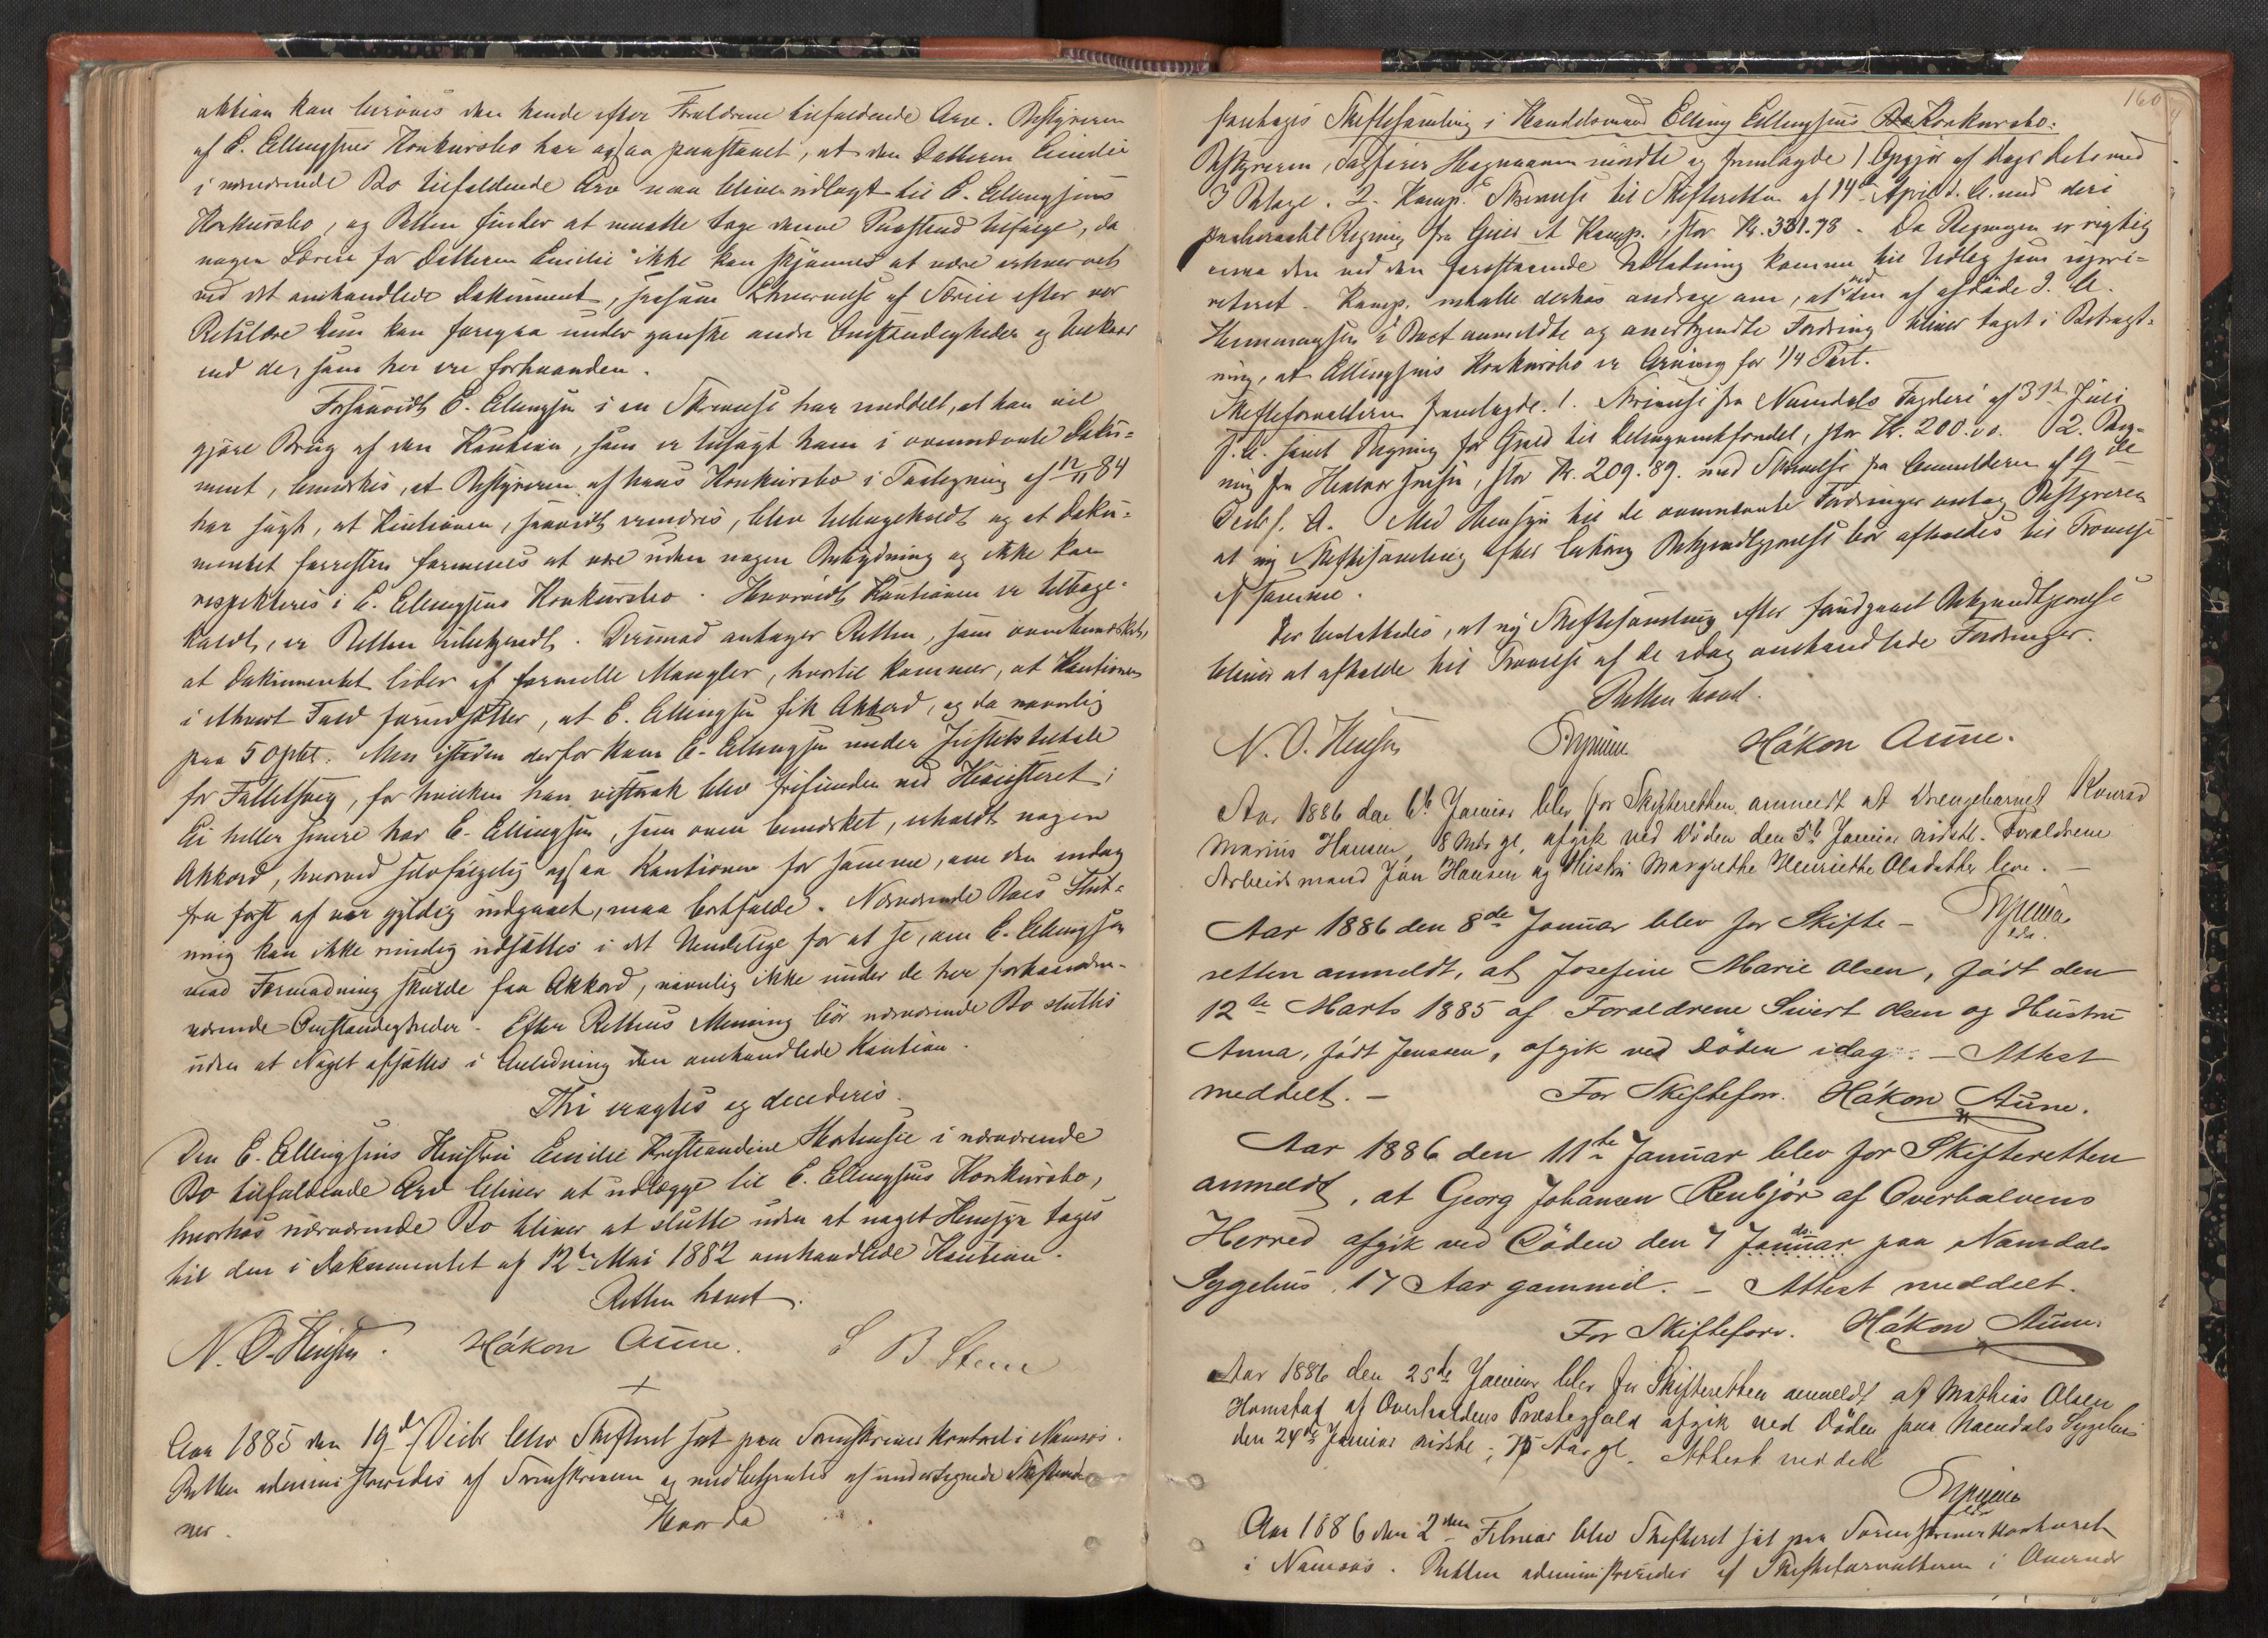 aktion kan berøves den hende efter Forældrene tilfaldende Arv. Bestyreren
af E. Ellingsens Konkursbo har ogsaa paastaaet, at den Datteren Emilie
i nærværende Bo tilfaldende Arv maa blive udlagt til E. Ellingsens
Konkursbo, og Retten finder at maatte tage denne Paastand tilfølge, da
nogen Særeie for Datteren Emilie ikke kan skjønnes at være erhvervet
ved det omhandlede Dokument, saasom Erhvervelse af Særeie efter vor
Retslære kun kan foregaa under ganske andre Omstændigheder og Vilkaar
end de, som her ere forhaanden.
Forsaavidt E. Ellingsen i en Skrivelse har meddelt, at han vil
gjøre Brug af den Kaution, som er tilsagt ham i ovennævnte Doku-
ment, bemærkes, at Bestyreren af hans Konkursbo i Tilegning af 12/11 84
har sagt, at Kautionen, saavidt erindres, blev tilbagekaldt og at Doku-
mentet forresten formenes at være uden nogen Betydning og ikke kan
respekteres i E. Ellingsens Konkursbo. Hvorvidt Kautionen er tilbage-
kaldt, er Retten ubekjendt. Derimod antager Retten, som ovenbemærket,
at Dokumentet lider af formelle Mangler, hvortil kommer, at Kautionen
i ethvert Fald forudsatte, at E. Ellingsen fik Akkord, og da navnlig
paa 50 pCt. Men istedenfor kom E. Ellingsen under Justitstiltale
for Falletsvig, for hvilken han vistnok blev frifunden ved Høiesteret;
Ei heller senere har E. Ellingsen, som oven bemærket, erholdt nogen
Akkord, hvorved selvfølgelig ogsaa Kautionen for samme, om den endog
fra først af var gyldig indgaaet, maa bortfalde. Nærværende Boes Slut-
ning kan ikke rimelig udsættes i det Uendelige for at se, om E. Ellingsen
mod Formodning skulde faa Akkord, navnlig ikke under de her forhaanden-
værende Omstændigheder. Efter Rettens Mening bør nærværende Bo sluttes
uden at Noget afsættes i Anledning den omhandlede Kaution.
Thi eragtes og decideres.
Den E. Ellingsens Hustru Emilie Kristiandine Hortensie i nærværende
Bo tilfaldende Arv bliver at udlægge til E. Ellingsens Konkursbo,
hvorhos nærværende Bo bliver at slutte uden at noget Hensyn tages
til den i Dokumentet af 12te Mai 1882 omhandlede Kaution.
Retten hævet.
N. O. Hensen. Håkon Aune. S B Steen
Aar 1885 den 19de Decbr blev Skifteret sat paa Sorenskriverkontoret i Namsos.
Retten administreredes af Sorenskriveren og medbetjentes af undertegnede Skiftevid-
ner. Hvorda
160
foretoges Skiftesamling i Handelsmand Elling Ellingsens Bo Konkursbo.
Bestyreren, Sagfører Hagemann mødte og fremlagde 1. Opgjør af Dags Dato med
3 Bilage. 2. Komp. Skrivelse til Skifteretten af 14de April d. A. med deri
paaberaabt Regning fra Giers et Komp., stor Kr. 331.78. Da Regningen er rigtig
maa den ved den forestaaende Udlodning komme til Udlæg som uprio-
riteret. Komp. maatte derhos andrage om, at ved den af afdøde J. A.
Hermansen i Boet anmeldte og anerkjendte Fordring bliver taget i Betragt-
ning, at Ellingsens Konkursbo er Arving for 1/4 Part.
Skifteforvalteren fremlagde. 1. Skrivelse fra Namdals Fogderi af 31te Juli
f. A. samt Regning for Gjæld til Delinqventfondet, stor Kr. 200.00. 2. Reg-
ning fra Henrik Jensen, stor Kr. 209.89. med Skrivelse fra Anmelderen af 9de
Decbr f. A. Med Hensyn til de ovennævnte Fordringer antog Bestyreren
at ny Skiftesamling efter lovlig Bekjendtgjørelse bør afholdes til Prøvelse
af samme.
Der besluttedes, at ny Skiftesamling efter foudgaaet Bekjendtgjørelse
bliver at afholde til Prøvelse af de idag omhandlede Fordringer.
Retten hævet.
N. O. Hensen Håkon Aune.
Aar 1886 den 6te Januar blev for Skifteretten anmeldt at Drengebarnet Konrad
Marius Hansen, 8 Mdr gl. afgik ved Døden den 5te Januar nidstl. Forældrene
Arbeidsmand Jon Hansen og Hustru Margrethe Henriethe Olsdatter leve.
Aar 1886 den 8de Januar blev for Skifte-
retten anmeldt, at Josefine Marie Olsen, født den
12te Marts 1885 af Forældrene Sivert Olsen og Hustru
Anna, født Jenssen, afgik ved Døden idag. - Attest
meddelt. - For Skiftefor. Håkon Aune.
Aar 1886 den 11te Januar blev for Skifteretten
anmeldt, at Georg Johansen Renbjør af Overhalvens
Herred afgik ved Døden den 7 Januar ds. paa Namdals
Sygehus, 17 Aar gammel. - Attest meddelt.
For Skifteforv. Håkon Aune.
Aar 1886 den 25de Januar blev for Skifteretten anmeldt at Mathias Olsen
Homstad af Overhaldens Præstegjæld afgik ved Døden paa Namdals Sygehus
den 24de Januar nidste, 75 Aar gl. Attest meddelt
Aar 1886 den 2den Februar blev Skifteret sat paa Sorenskriverkontoret
i Namsos. Retten administreredes af Skifteforvalteren i Overvær